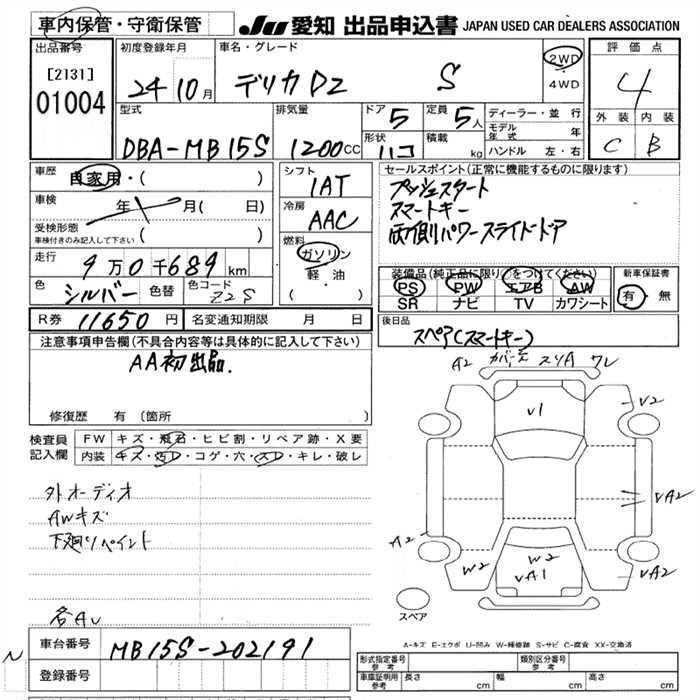 車内保管・守衛保管
JU 愛知 出品申込書 JAPAN USED CAR DEALERS ASSOCIATION
出品番号
[2131]
01004
初度登録年月
24 10月
車名・グレード
デリカD2 S
2WD
・
4WD
評価点
4
外装 内装
C B
型式
DBA-MB15S
排気量
1200CC
ドア 5
形状 ハコ
定員 5人
積載 kg
ディーラー・並行
モデル年式 年
ハンドル 左・右
車歴 自家用・( )
車検 年 月( 日)
受検形態
車検付きのみ記入して下さい ( )
走行 9万0千689km
色 シルバー 色替 色コード Z2S
シフト
IAT
冷房
AAC
燃料
ガソリン
軽油
( )
セールスポイント(正常に機能するものに限ります)
プッシュスタート
スマートキー
両側パワースライドドア
装備品(純正品に限り○をつけてください)
PS PW エアB AW
SR ナビ TV カワシート
新車保証書
有・無
R券 11650円 名変通知期限 月 日
後日品
スペア(スマートキー)
注意事項申告欄(不具合内容等は具体的に記入して下さい)
AA初出品.
修復歴 有(箇所 )
検査員記入欄
FW キズ・飛石・ヒビ割・リペア跡・X要
内装 キズ・汚レ・コゲ・穴・スレ・キレ・破レ
外オーディオ
AWキズ
下廻りペイント
各AU
A2 スリA ワレ
V1
V2
VA2
A2
W2
W2
VA1
VA2
スペア
A-キズ E-エクボ U-凹み W-補修跡 S-サビ C-腐食 XX-交換済
車台番号 MB15S-202191
N
登録番号
形式指定番号 参考
類別区分番号 参考
車庫証明用 参考 長さ cm 幅 cm 高さ cm